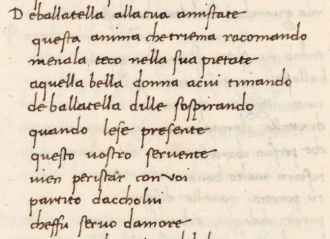 D eballatella allatua amistate
questa anima chetriema racomando
menala teco nella sua pietate
aquella bella donna acui timando
de ballatella dille sospirando
quando lese presente
questo vostro servente
vien peristar con voi
partito daccholui
cheffu servo damore